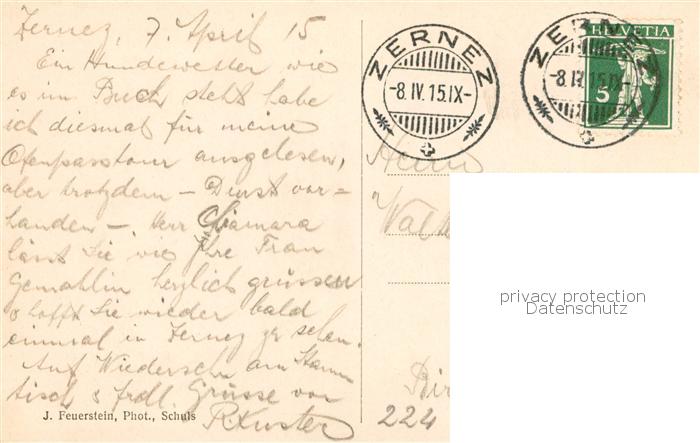 Zernez, 7. April 15
Ein Hundewetter wie
es im Buch steht habe
ich diesmal für meine
Ofenpasstour ausgelesen,
aber trotzdem – Durst vor=
handen –. Herr
lässt Sie wie Ihre Frau
Gemahlin herzlich grüssen
& hofft Sie wieder bald
einmal in Zernez zu sehen.
Auf Wiedersehn am Stamm
tisch & frdl. Grüsse von
R. Kuster
J. Feuerstein, Phot., Schuls
ZERNEZ
-8.IV.15.IX-
ZERNEZ
-8.IV.15.IX-
HELVETIA
5
Herrn
Walt
Bir
224
privacy protection
Datenschutz